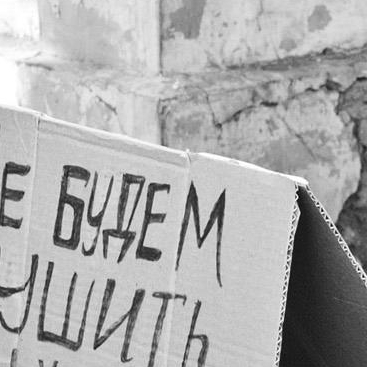 Е БУДЕМ
УШИТЬ